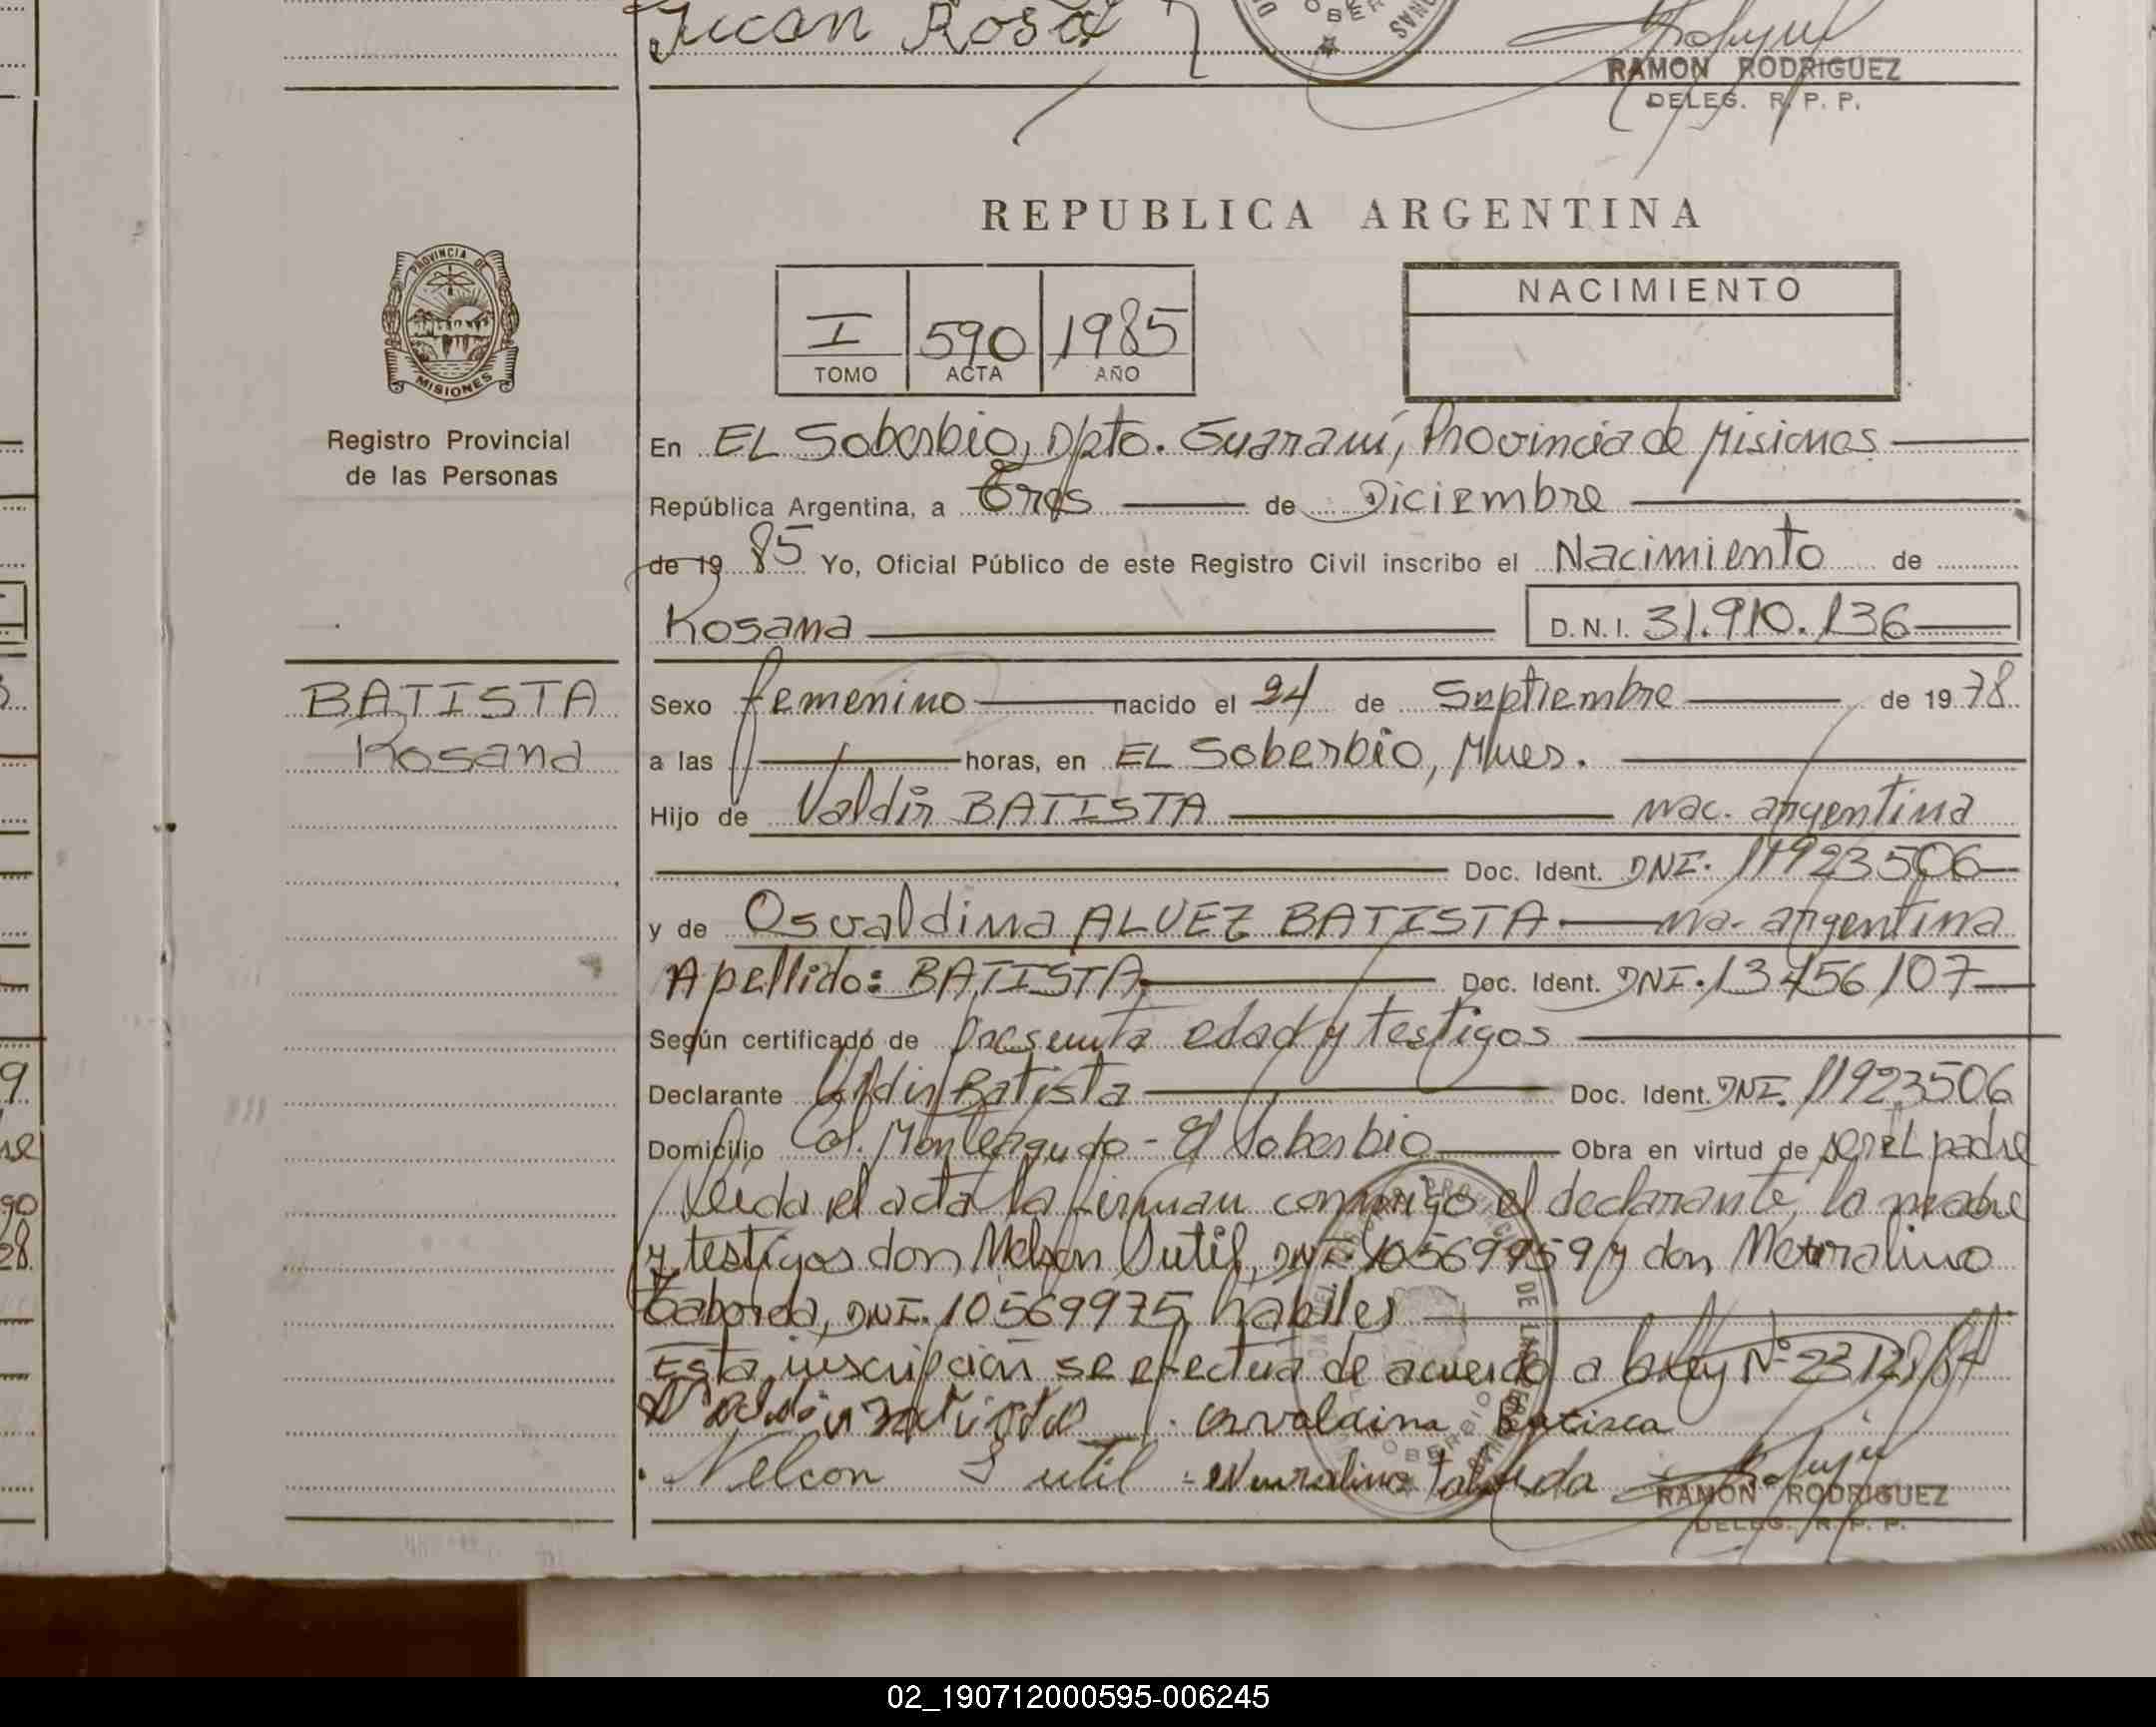 Juan Rosa
RAMON RODRIGUEZ
DELEG. R. P. P.
REPUBLICA ARGENTINA
PROVINCIA DE
MISIONES
Registro Provincial
de las Personas
I 590 1985
TOMO ACTA AÑO
NACIMIENTO
En EL Soberbio, Dpto. Guaraní, Provincia de Misiones
República Argentina, a Tres de Diciembre
de 19 85 Yo, Oficial Público de este Registro Civil inscribo el Nacimiento de
Rosana D.N.I. 31.910.136
BATISTA
Rosana
Sexo femenino nacido el 24 de Septiembre de 19 78
a las horas, en EL Soberbio, Mnes.
Hijo de Valdir BATISTA nac. argentina
Doc. Ident. DNI. 11923506
y de Osvaldina ALVEZ BATISTA na. argentina
Apellido: BATISTA Doc. Ident. DNI. 13456107
Según certificado de Presunta edad y testigos
Declarante Valdir Batista Doc. Ident. DNI. 11923506
Domicilio Col. Monteagudo - El Soberbio Obra en virtud de ser el padre
Leida el acta la firman conmigo el declarante, la madre
y testigos don Nelson Sutil, DNI. 10569959 y don Neuralino
Taborda, DNI. 10569975, habiles
Esta inscripción se efectua de acuerdo a la Ley Nº 23128/84
Valdir Batista Osvaldina Batista
Nelcon Sutil Neuralino Taborda
RAMON RODRIGUEZ
DELEG. R. P. P.
02_190712000595-006245